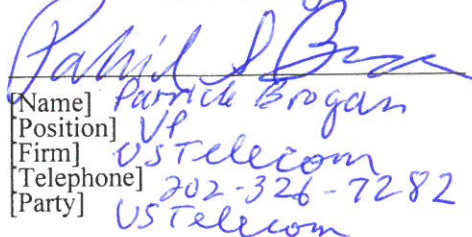 [Name] Patrick Brogan
[Position] VP
[Firm] USTelecom
[Telephone] 202-326-7282
[Party] USTelecom